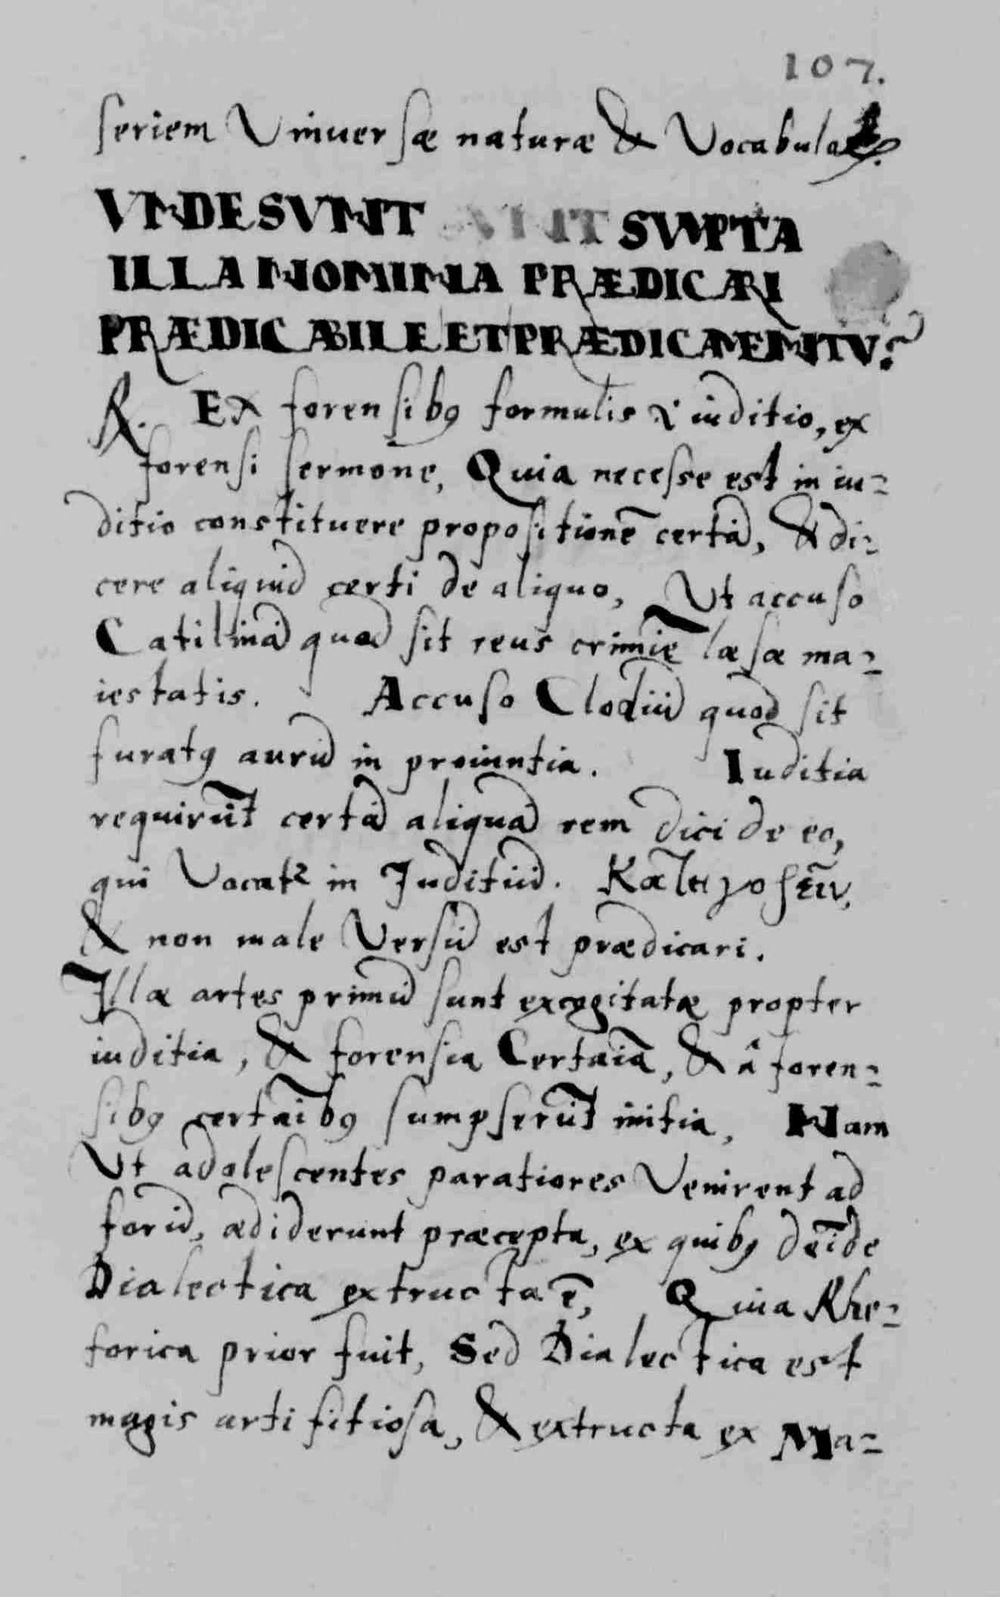 107.
seriem Vniuersæ naturæ & Vocabulo
VNDE SVNT SVMPTA
ILLA NOMINA PRÆDICARI
PRÆDICABILE ET PRÆDICAMENTV̄?
R. Ex forensibꝫ formulis & iuditio, ex
forensi sermone, Quia necesse est in iu-
ditio constituere propositionē certā, & di-
cere aliquid certi de aliquo, Ut accuso
Catilinā quod sit reus crimiē læsæ ma-
iestatis. Accuso Clodiū quod sit
furatꝰ aurū in prouintia. Iuditia
requirūt certā aliquā rem dici de eo,
qui Vocatr in Juditiū.
& non male Versū est prædicari.
Illæ artes primū sunt excogitatæ propter
iuditia, & forensia Certaīa, & â foren-
sibꝫ certaībꝫ sumpserūt initia, Nam
Vt adolescentes paratiores Venirent ad
forū, ædiderunt præcepta, ex quibꝫ deīde
Dialectica extructa ē, Quia Rhe-
torica prior fuit, Sed Dialectica est
magis artifitiosa, & extructa ex Ma-